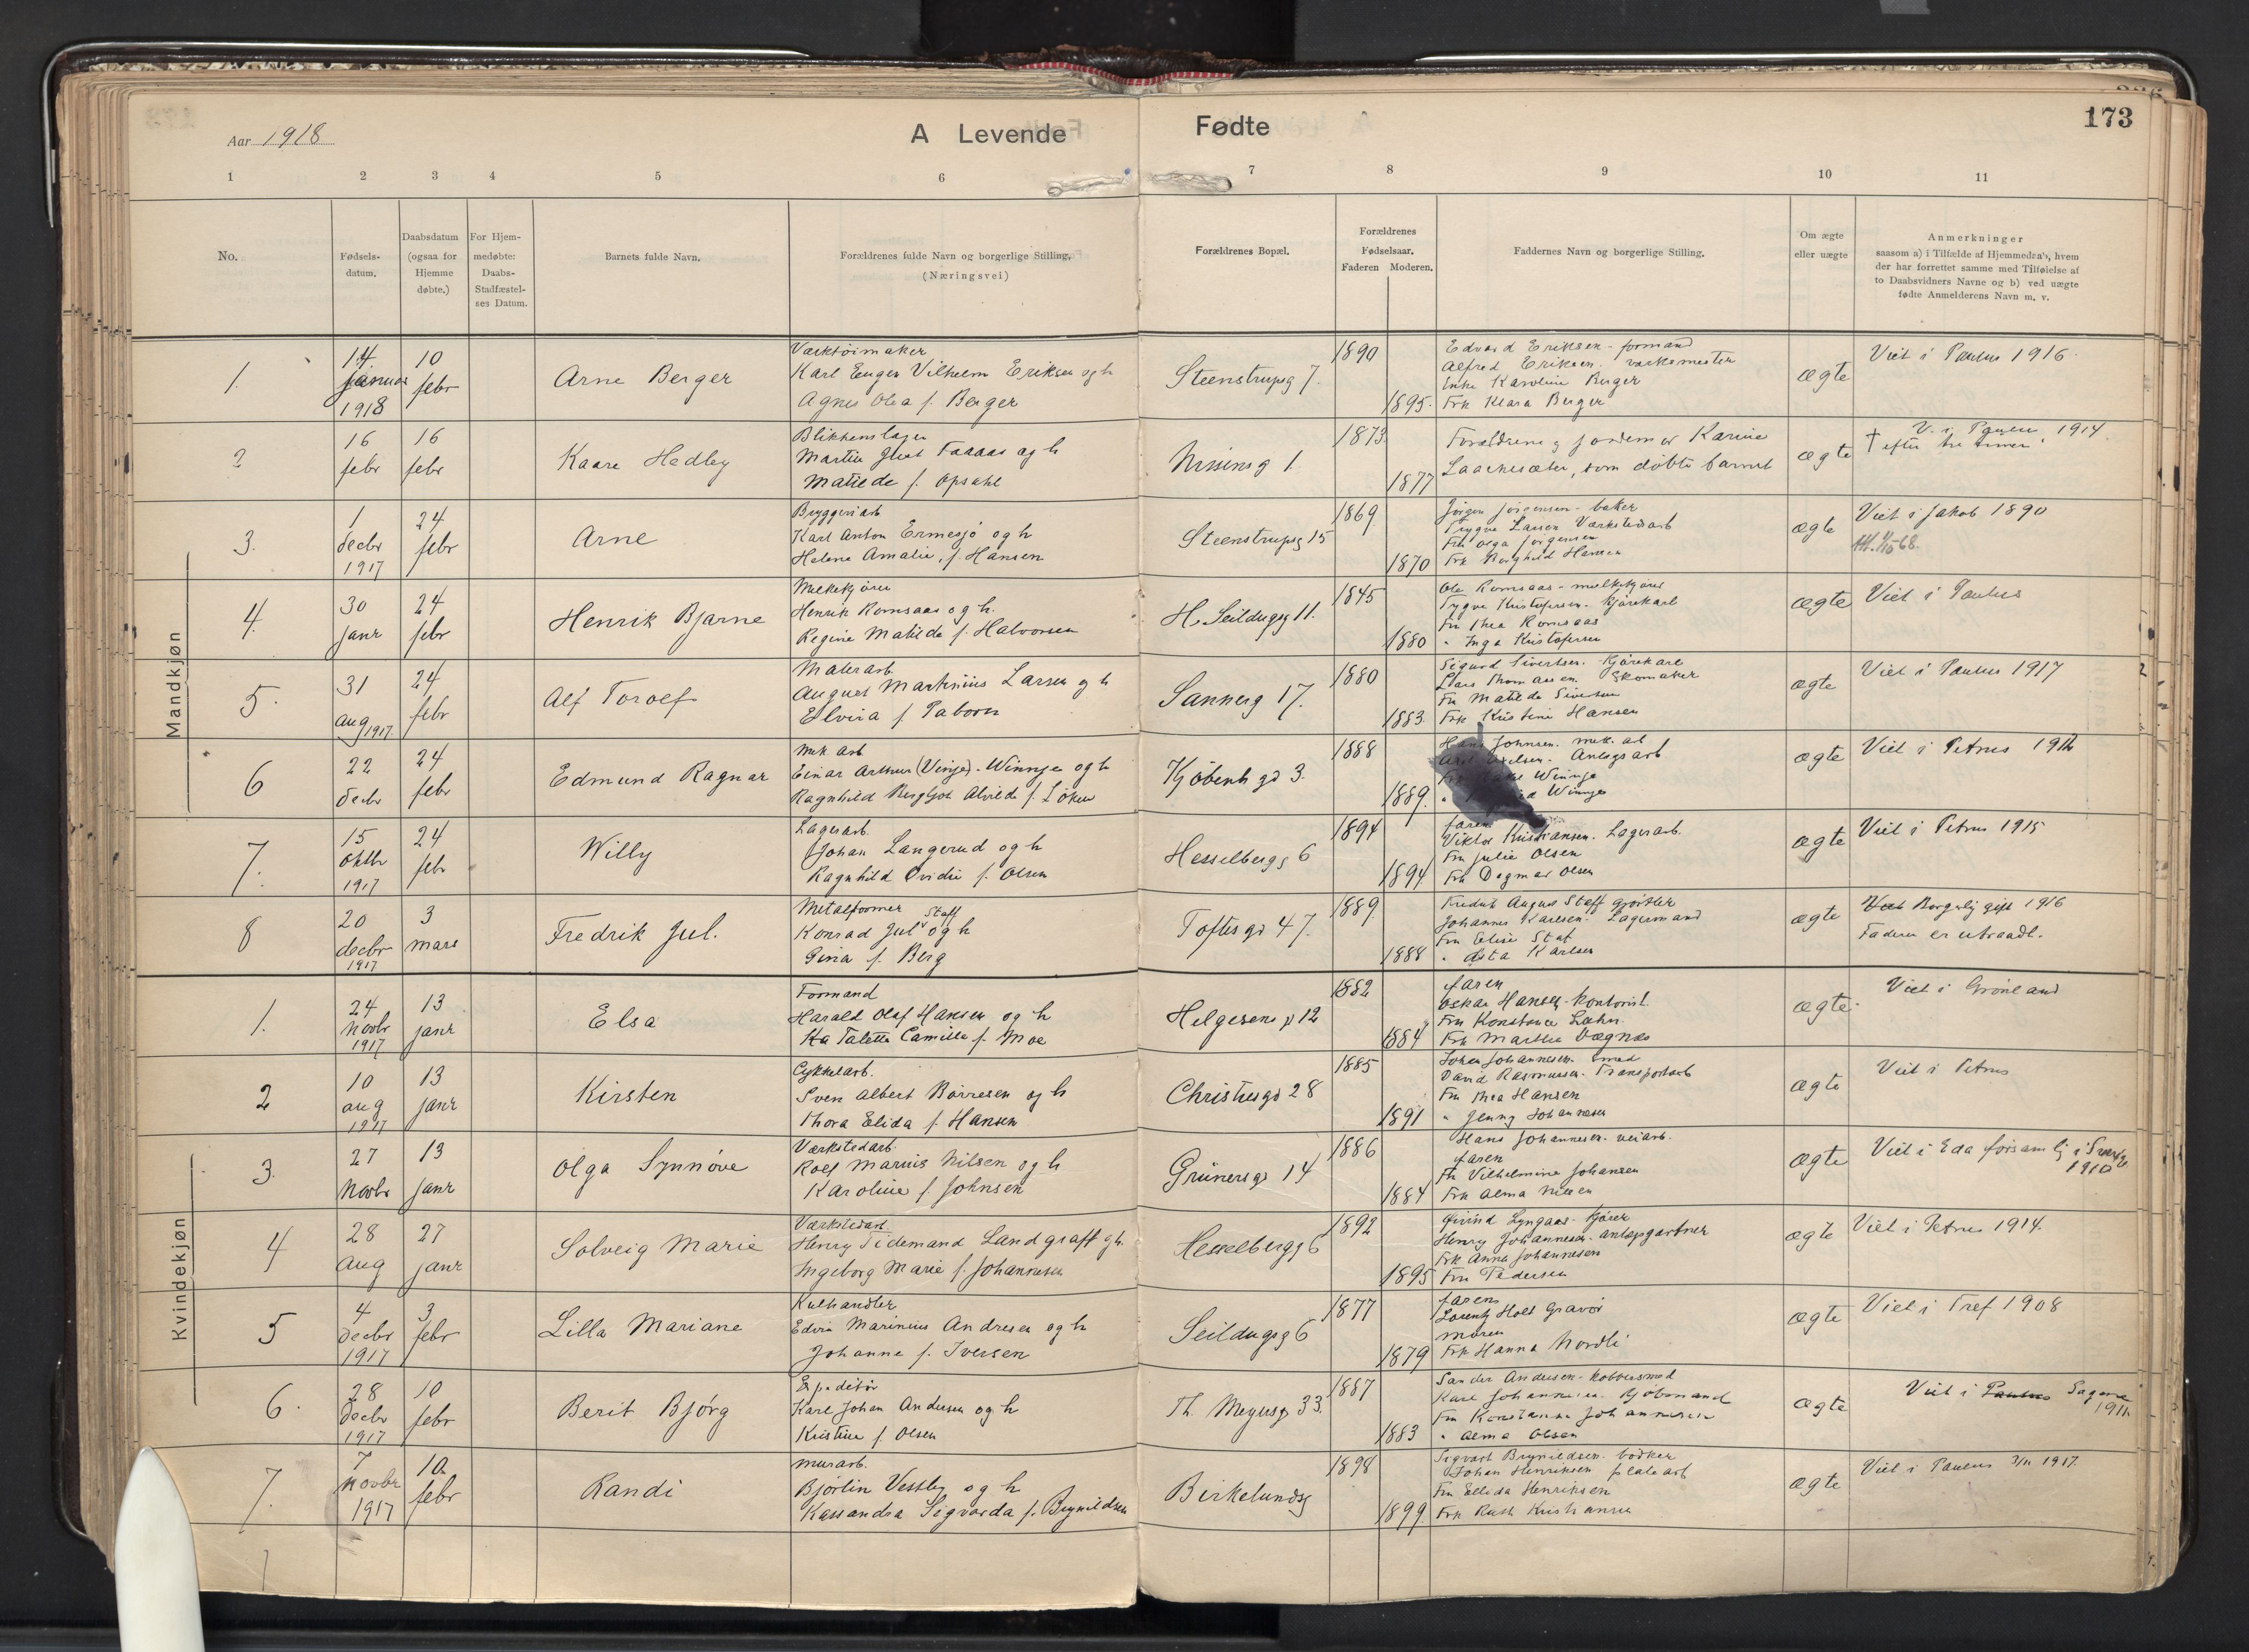 173
Aar 1918
A Levende Fødte
1 2 3 4 5 6 7 8 9 10 11
No.
Fødsels-
datum.
Daabsdatum
(ogsaa for
Hjemme
døbte.)
For Hjem-
medøbte:
Daabs-
Stadfæstel-
ses Datum.
Barnets fulde Navn.
Forældrenes fulde Navn og borgerlige Stilling.
(Næringsvei)
Forældrenes Bopæl.
Forældrenes
Fødselsaar.
Faderen Moderen.
Faddernes Navn og borgerlige Stilling.
Om ægte
eller uægte
Anmerkninger
saasom a) i Tilfælde af Hjemmedaab, hvem
der har forrettet samme med Tilføielse af
to Daabsvidners Navne og b) ved uægte
fødte Anmelderens Navn m. v.
Mandkjøn
1.
14
januar
1918
10
febr
Arne Berger
Værktøimaker
Karl Eugen Vilhelm Eriksen og h
Agnes Olea f. Berger
Steenstrupsg 7.
1890
1895.
Edvard Eriksen - formand
Alfred Eriksen. verksmester
Enke Karoline Berger
Frk Klara Berger
ægte
Viet i Paulus 1916.
2
16
febr
16
febr
Kaare Hedley
Blikkenslager
Matilde f. Opsahl
Nissensg 1.
1873
1877
Forældrene og jordemor Karine
som døbte barnet
ægte
V. i Paulus 1914.
† efter tre timer
3.
1
decbr
1917
24
febr
Arne
Bryggeriarb
Karl Anton Ermesjø og h
Helene Amalie, f. Hansen
Steenstrupsg 15
1869
1870
Jørgen Jørgensen - baker
Trygve Larsen Værkstedsarb
Fru Olga Jørgensen
Frk Borghild Hansen
ægte
Viet i Jakob 1890
4.
30
janr
24
febr
Henrik Bjarne
Melkekjører
Henrik Romsaas og h.
Regine Matilde f. Halvorsen
H. Seildugsg 11.
1845
1880
Ole Romsaas - melkekjører
Trygve Kristofersen - kjørekarl
Fru Thea Romsaas
" Inga Kristofersen
ægte
Viet i Paulus
5.
31
aug 1917
24
febr
Alf Torolf
Malerarb.
August Martinius Larsen og h
Elvira f.
Sannerg 17.
1880
1883.
Sigurd Sivertsen. Kjørekarl
Lars Thomassen. Skomaker
Fru Matilde Sivertsen
Frk Kristine Hansen
ægte
Viet i Paulus 1917
6
22
decbr
24
febr
Edmund Ragnar
Mek. Arb.
Einar Arthur (Vinje). Winnje og h
Ragnhild Bergljot Alvilde f. Løken
Kjøbenh gd 3.
1888
1889.
Hans Johnsen. mek. arb
Anlægsarb
Winnje
Winnje
ægte
Viet i Petrus
7.
15
oktbr
1917
24
febr
Willy
Lagerarb.
Johan Langerud og h
Ragnhild Ovidie f. Olsen
Hesselbergs g 6
1894
1894.
faren
Viktor Kristiansen. Lagerarb.
Fru Julie Olsen
Frk Dagmar Olsen
ægte
Viet i Petrus 1915
8
20
decbr
1917
3
mars
Fredrik Jul.
Metalformer
Staff
Konrad Jul og h
Gina f. Berg
Toftes gd 47.
1889.
1888
Fredrik August Staff gjørtler
Johannes Karlsen. Lagermand
Fru Elise Staf
" Asta Karlsen
ægte
Viet Borgerlig gift 1916
Faderen er utraadt.
Kvindekjøn
1.
24
Novbr
1917
13
janr
Elsa
Formand
Harald Olaf Hansen og h
Ka Taletta Camilla f. Moe
Helgesens g 12
1882
1884
faren
Oskar Hansen - kontorist.
Fru Konstance Løhn.
Frk Martha Vågnes
ægte
Viet i Grønland
2
10
aug
1917
13
janr
Kirsten
Cykkelarb.
Sven Albert Børresen og h
Thora Elida f. Hansen
Christiesgd 28
1885
1891
Johan Johannesen. smed
David Rasmussen. Transportarb
Fru Thea Hansen
" Jenny Johannesen
ægte
Viet i Petrus
3.
27
Novbr
13
janr
Olga Synnøve
Værkstedarb
Rolf Marius Nilsen og h
Karoline f. Johnsen
Grünersgd 14
1886
1884
Hans Johannesen. veiarb.
faren
Fru Vilhelmine Johansen
Frk Alma Nilsen
ægte
Viet i Eda førsamlg i Sverige
1910
4
28
aug
27
janr
Solveig Marie
Værkstedarb.
Henry Tidemand Landgraff og h.
Ingeborg Marie f. Johannesen
Hesselbergg 6
1892
1895
Øivind Lyngaas - kjører
Henry Johannesen - anlægsgartner
Frk Anna Johannesen
Fru Pedersen
ægte
Viet i Petrus 1914.
5
4
decbr
1917
3
febr
Lilla Mariane
Kulhandler
Edvin Marinius Andresen og h
Johanne f. Iversen
Seildugsg 6
1877
1879
faren
Lorentz Holt Gravør
moren
Frk Hanna Nordli
ægte
Viet i Tref 1908
6.
28
decbr
1917
10
febr
Berit Bjørg
Expeditør
Karl Johan Andersen og h
Kristine f. Olsen
Th. Meyersg 33.
1887
1883
Sander Andersen - kobbersmed
Karl Johannesen. Kjøbmand
Fru Konstanse Johannesen
" Alma Olsen
ægte
Viet i Paulus Sagene
1911
7.
7
Novbr
1917
10
febr
Randi
Murarb.
Bjørlin Vestby og h
Kassandra Sigvarda f. Brynildsen
Birkelundsg
1898
1899.
Sigvart Brynildsen. bødker
Johan Henriksen platearb
Fru Ellida Henriksen
Frk Ruth Kristiansen
ægte
Viet i Paulus 3/11 1917.